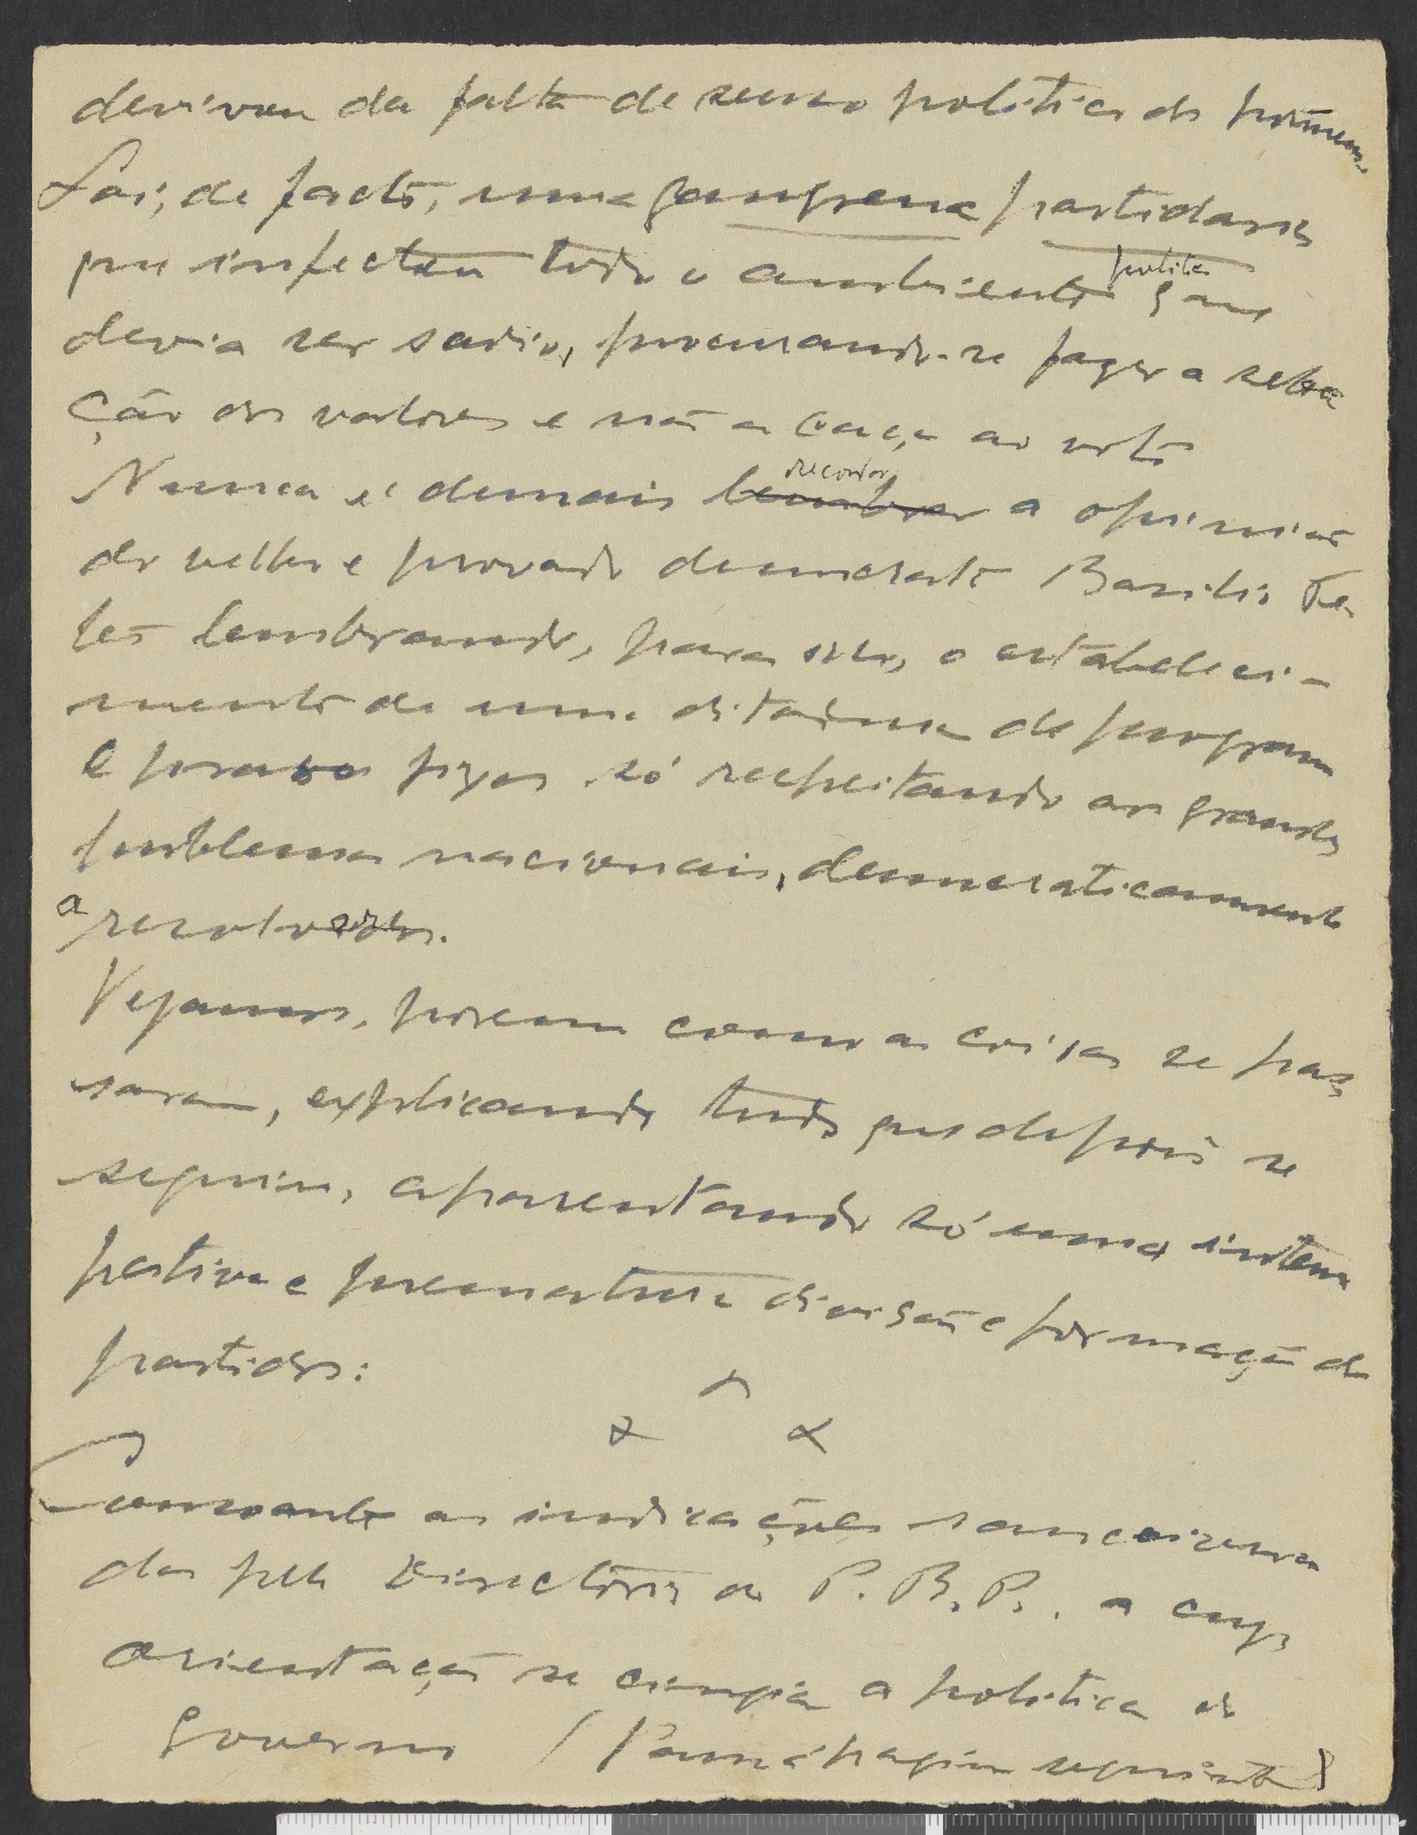 derivou da falta de senso politico do
Foi, de facto, uma gangrena partidaria
que infectou todo o ambiente politico que
devia ser sadio, procurando-se fazer a sele
ção dos valores e não a caça ao voto
Nunca é demais lembrar recordar a opinião
do velho e provado democrata Bazilio Te
les lembrando, para isso, o estabeleci-
mento de uma ditadura de programa
e prazos fixos só respeitando aos grandes
problemas nacionais, democraticamente
a resolver.
Vejamos, porem como as coisas se pas
saram, explicando tudo que depois se
seguiu, aparentando só uma intem
pestiva e prematura divisão e formação de
partidos:
x x x
Consoante as indicações
das pelo Directorio do P. R. P. a cuja
orientação se cingia a politica do
governo (Passa á pagina seguinte)